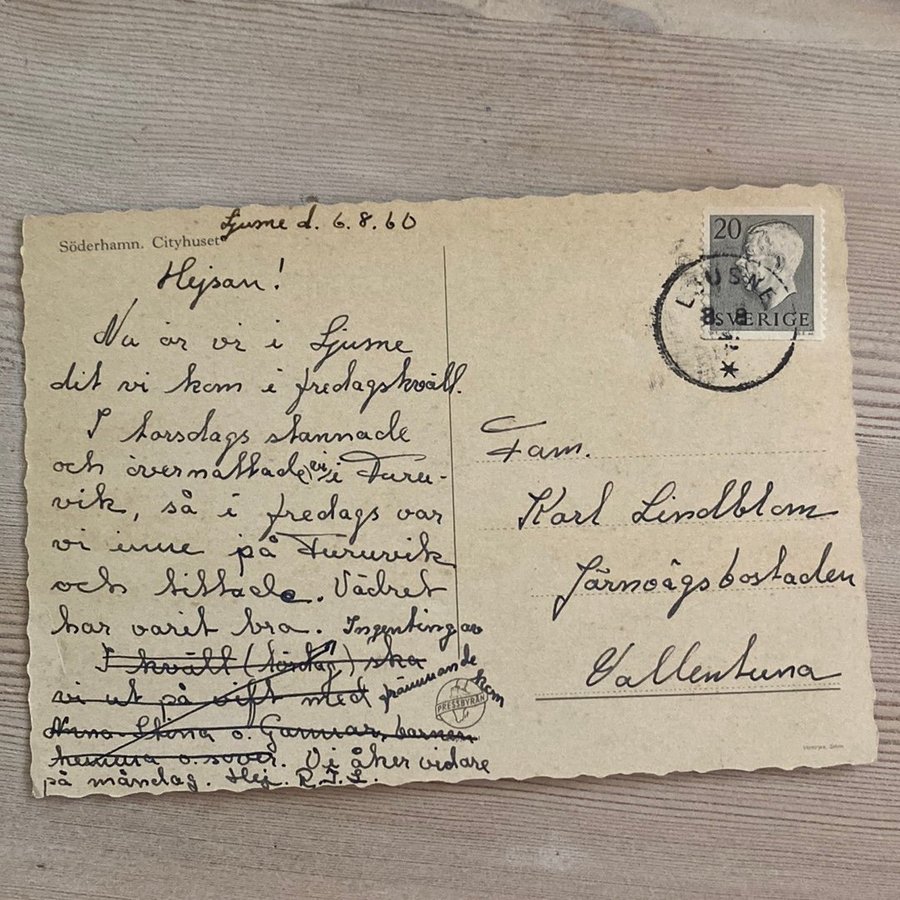 Ljusne d. 6.8.60
Söderhamn. Cityhuset
Hejsan!
Nu är vi i Ljusne
dit vi kom i fredagskväll.
I torsdags stannade
och övernattade vi i Furu-
vik, så i fredags var
vi inne på Furuvik
och tittade. Vädret
har varit bra. Ingenting av
I kväll (lördag) ska
vi ut på vift med främmande
hem
Anna-Stina o. Gunnar, barnen
hemma o. sover. Vi åker vidare
på måndag. Hej. R.I.L.
PRESSBYRÅN
20
SVERIGE
LJUSNE
8 8
Fam.
Karl Lindblom
Järnvägsbostaden
Vallentuna